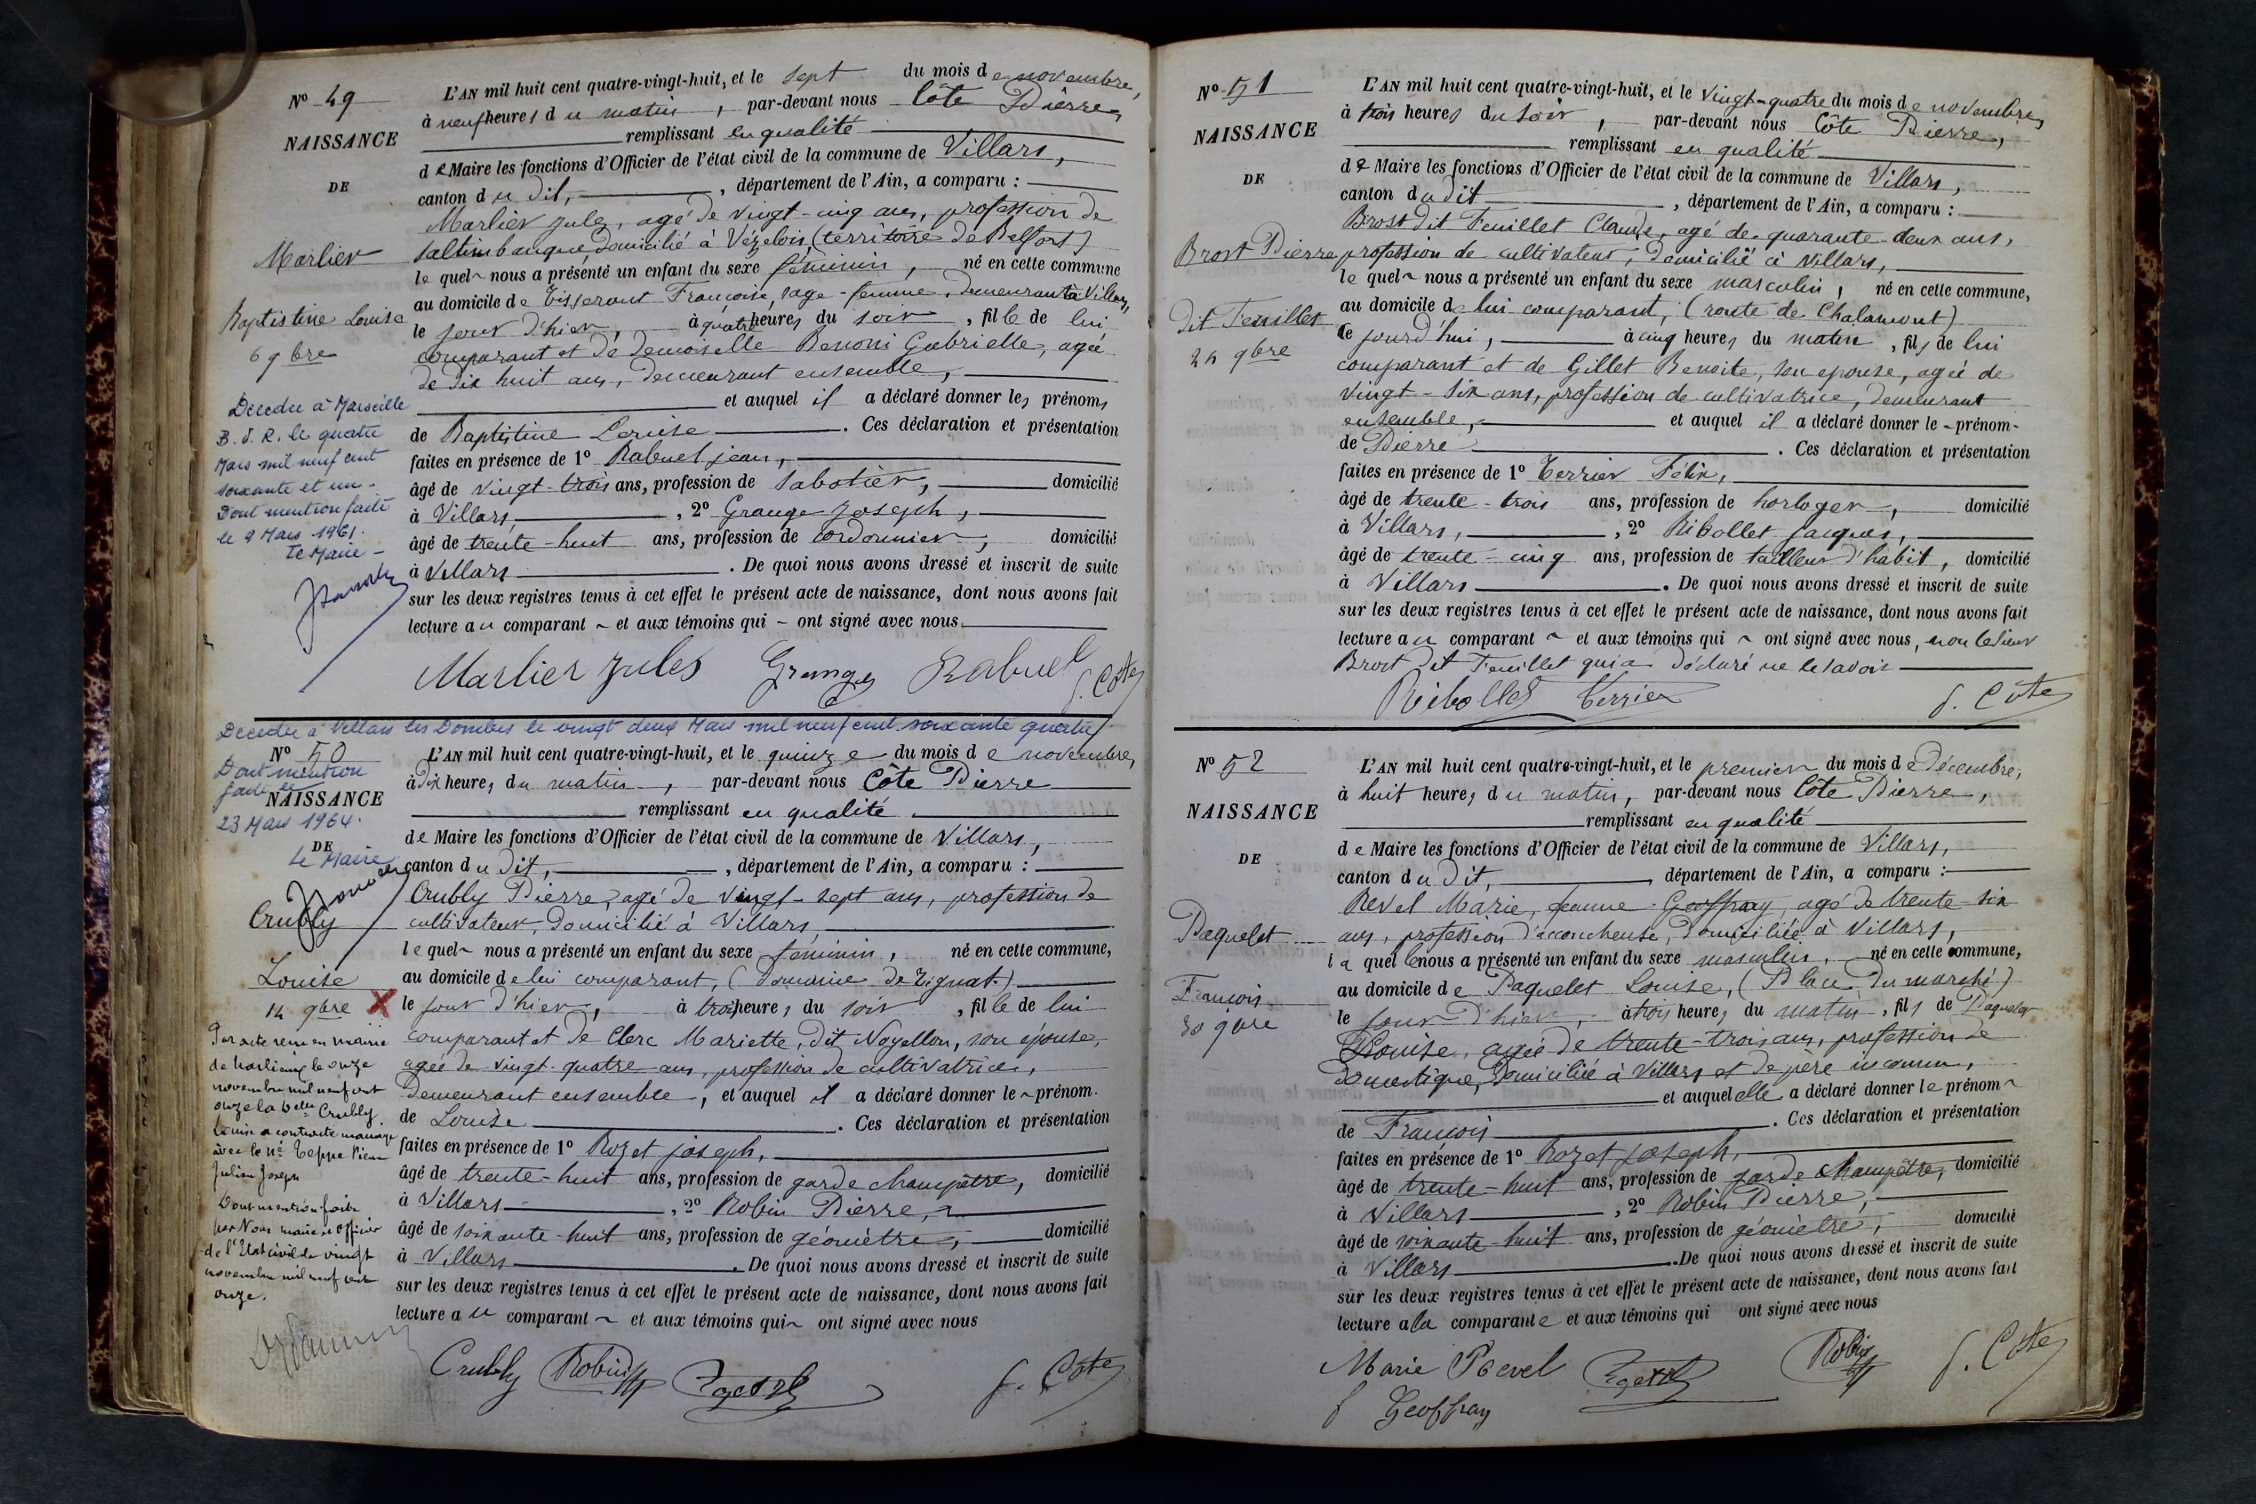 N° 49
NAISSANCE
DE
Marlier
Baptistine Louise
6 9bre
Décédée à Marseille
B. d. R. le quatre
Mars mil neuf cent
soixante et un -
Dont mention faite
le 9 Mars 1961.
Le Maire -
L'AN mil huit cent quatre-vingt-huit, et le sept du mois de novembre,
à neuf heures du matin, par-devant nous Côte Pierre,
remplissant en qualité
de Maire les fonctions d'Officier de l'état civil de la commune de Villars,
canton du dit, département de l'Ain, a comparu :
Marlier Jules, agé de vingt-cinq ans, profession de
saltimbanque, domicilié à Vézelois, (territoire de Belfort)
lequel nous a présenté un enfant du sexe féminin, né en cette commune
au domicile de Tisserant Françoise, sage-femme, demeurant à Villars,
le jour d'hier, à quatre heures du soir, fille de lui
comparant et de demoiselle Benoni Gabrielle, agée
de dix huit ans, demeurant ensemble,
et auquel il a déclaré donner les prénoms
de Baptistine Louise. Ces déclaration et présentation
faites en présence de 1° Rabuel jean,
âgé de vingt-trois ans, profession de sabotier, domicilié
à Villars, 2° Grange Joseph,
âgé de trente-huit ans, profession de cordonnier, domicilié
à Villars. De quoi nous avons dressé et inscrit de suite
sur les deux registres tenus à cet effet le présent acte de naissance, dont nous avons fait
lecture au comparant et aux témoins qui ont signé avec nous.
Marlier Jules Grange Rabuel J. Côte
Décédée à Villars les Dombes le vingt deux Mars mil neuf cent soixante quatre
N° 50
Dont mention
faite le
NAISSANCE
23 Mars 1964.
DE
Le Maire
Crubly
Louise
14 9bre X
Par acte reçu en mairie
de le onze
novembre mil neuf cent
onze la delle Crubly
Louise a contracté mariage
avec le sr Teppe Pierre
Julien Joseph
Dont mention faite
par Nous maire et officier
de l'Etat civil le vingt
novembre mil neuf cent
onze.
L'AN mil huit cent quatre-vingt-huit, et le quinze du mois de novembre,
à dix heures du matin, par-devant nous Côte Pierre
remplissant en qualité
de Maire les fonctions d'Officier de l'état civil de la commune de Villars,
canton du dit, département de l'Ain, a comparu :
Crubly Pierre, agé de vingt-sept ans, profession de
cultivateur, domicilié à Villars,
lequel nous a présenté un enfant du sexe féminin, né en cette commune,
au domicile de lui comparant, (domaine de Zignat)
le jour d'hier, à trois heures du soir, fille de lui
comparant et de Clerc Mariette, dit Noyellon, son épouse,
agée de vingt-quatre ans, profession de cultivatrice,
demeurant ensemble, et auquel il a déclaré donner le prénom
de Louise. Ces déclaration et présentation
faites en présence de 1° Rozet joseph,
âgé de trente-huit ans, profession de garde champêtre, domicilié
à Villars, 2° Robin Pierre,
âgé de soixante-huit ans, profession de géomètre, domicilié
à Villars. De quoi nous avons dressé et inscrit de suite
sur les deux registres tenus à cet effet le présent acte de naissance, dont nous avons fait
lecture au comparant et aux témoins qui ont signé avec nous
Crubly Robin Rozet J. Côte
N° 51
NAISSANCE
DE
Brost Pierre
dit Feuillet
24 9bre
L'AN mil huit cent quatre-vingt-huit, et le vingt-quatre du mois de novembre,
à trois heures du soir, par-devant nous Côte Pierre,
remplissant en qualité
de Maire les fonctions d'Officier de l'état civil de la commune de Villars,
canton du dit, département de l'Ain, a comparu :
Brost dit Feuillet Claude, agé de quarante-deux ans,
profession de cultivateur, domicilié à Villars,
lequel nous a présenté un enfant du sexe masculin, né en cette commune,
au domicile de lui comparant, (route de Chalamont)
ce jourd'hui, à cinq heures du matin, fils de lui
comparant et de Gillet Benoite, son epouse, agée de
vingt-six ans, profession de cultivatrice, demeurant
ensemble, et auquel il a déclaré donner le prénom
de Pierre. Ces déclaration et présentation
faites en présence de 1° Terrier Félix,
âgé de trente-trois ans, profession de horloger, domicilié
à Villars, 2° Ribollet Jacques,
âgé de trente-cinq ans, profession de tailleur d'habit, domicilié
à Villars. De quoi nous avons dressé et inscrit de suite
sur les deux registres tenus à cet effet le présent acte de naissance, dont nous avons fait
lecture au comparant et aux témoins qui ont signé avec nous, non le sieur
Brost dit Feuillet qui a déclaré ne le savoir
Ribollet Terrier J. Côte
N° 52
NAISSANCE
DE
Paquelet
François
30 9bre
L'AN mil huit cent quatre-vingt-huit, et le premier du mois de Décembre,
à huit heures du matin, par-devant nous Côte Pierre,
remplissant en qualité
de Maire les fonctions d'Officier de l'état civil de la commune de Villars,
canton du dit, département de l'Ain, a comparu :
Revel Marie, femme Geoffray, agé de trente-six
ans, profession d'accoucheuse, domiciliée à Villars,
laquelle nous a présenté un enfant du sexe masculin, né en cette commune,
au domicile de Paquelet Louise, (Place du marché)
le jour d'hier, à trois heures du matin, fils de Paquelet
Louise, agée de trente-trois ans, profession de
domestique, domiciliée à Villars et de père inconnu,
et auquel elle a déclaré donner le prénom
de François. Ces déclaration et présentation
faites en présence de 1° Rozet Joseph,
âgé de trente-huit ans, profession de garde champêtre, domicilié
à Villars, 2° Robin Pierre,
âgé de soixante-huit ans, profession de géomètre, domicilié
à Villars. De quoi nous avons dressé et inscrit de suite
sur les deux registres tenus à cet effet le présent acte de naissance, dont nous avons fait
lecture a la comparante et aux témoins qui ont signé avec nous
Marie Revel Rozet Robin J. Côte
f Geoffray